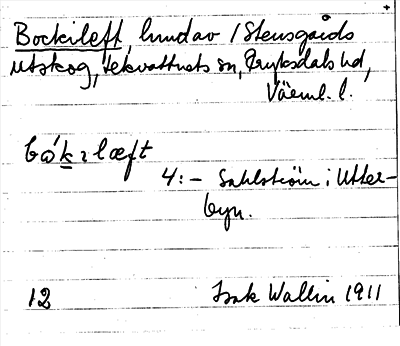 Bockileft, hundav / Stensgårds
utskog, Lekvattnets sn, Fryksdals hd,
Värml. l.
bωkɩlæft
4:- Sahlström i Utter-
byn.
12 Isak Wallin 1911